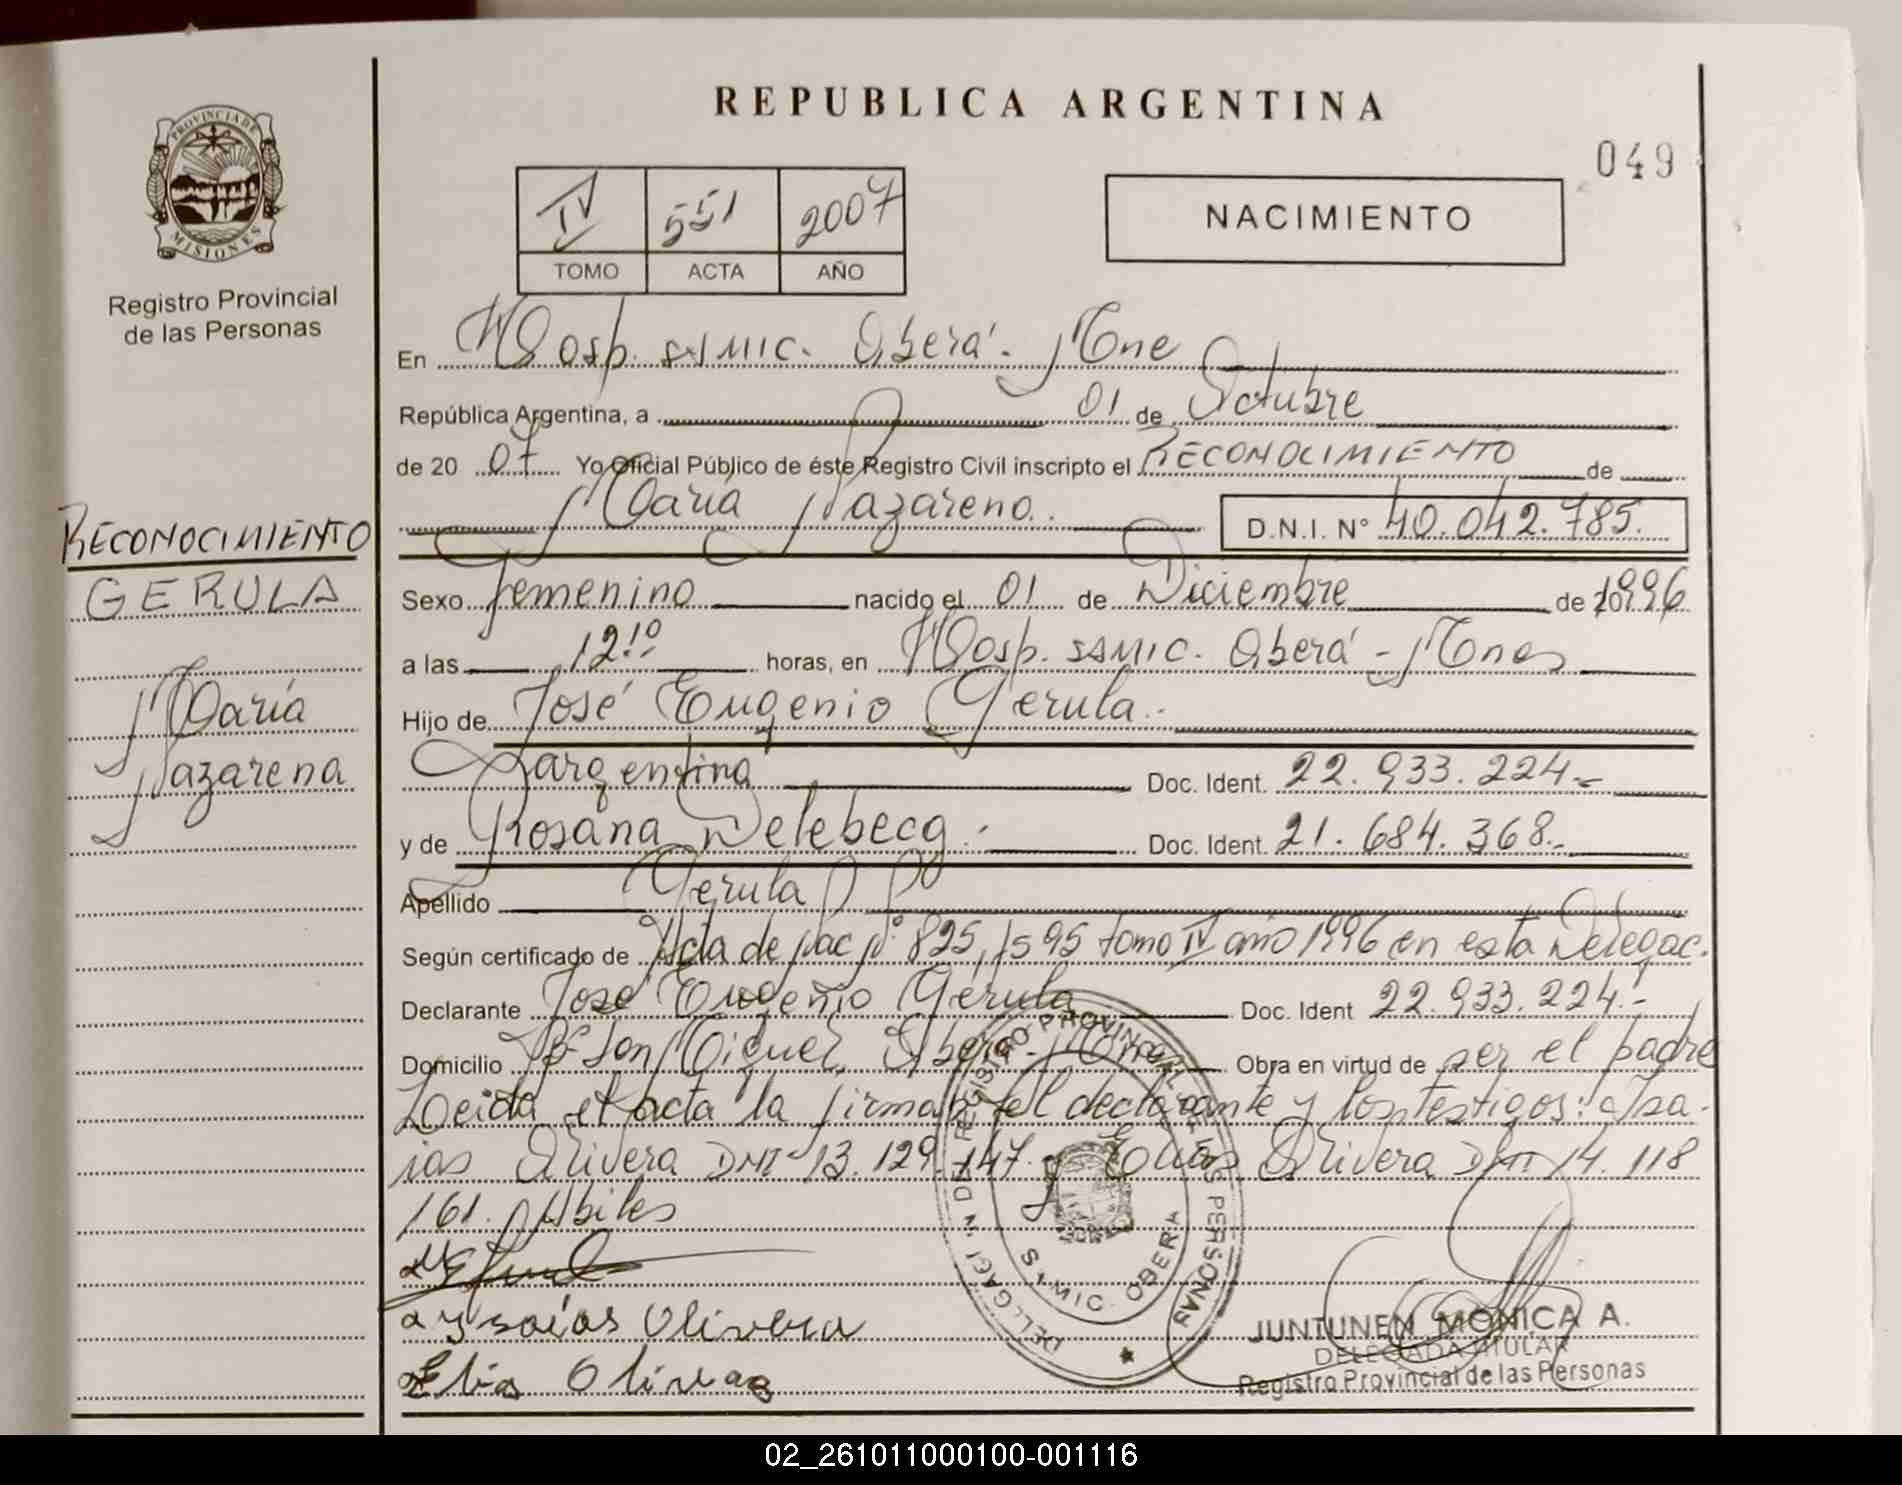 REPUBLICA ARGENTINA
049
PROVINCIA DE
MISIONES
Registro Provincial
de las Personas
IV 551 2007
TOMO ACTA AÑO
NACIMIENTO
En Hosp. SAMIC. Oberá - Mnes
República Argentina, a 01 de Octubre
de 20 07 Yo Oficial Público de éste Registro Civil inscripto el RECONOCIMIENTO de
María Nazareno. D.N.I. N° 40.042.785.
RECONOCIMIENTO
GERULA
María
Nazarena
Sexo femenino nacido el 01 de Diciembre de 1996
a las 12:10 horas, en Hosp. SAMIC. Oberá - Mnes
Hijo de José Eugenio Gerula.-
argentina Doc. Ident. 22.933.224.-
y de Rosana Delebecq.- Doc. Ident. 21.684.368.-
Apellido Gerula
Según certificado de Acta de Nac Nº 825, fs 95 tomo IV año 1996 en esta Delegac.
Declarante José Eugenio Gerula Doc. Ident 22.933.224.-
Domicilio Bº San Miguel, Oberá - Mnes Obra en virtud de ser el padre
Leida el acta la firma el declarante y los testigos: Isa-
ias Olivera DNI 13.129.147. y Elias Olivera DNI 14.118
161. Abiles
Ysaias Olivera
Elias Olivera
DELEGACION DE REGISTRO PROVINCIAL DE LAS PERSONAS
SAMIC. OBERA
JUNTUNEN MONICA A.
DELEGADA TITULAR
Registro Provincial de las Personas
02_261011000100-001116